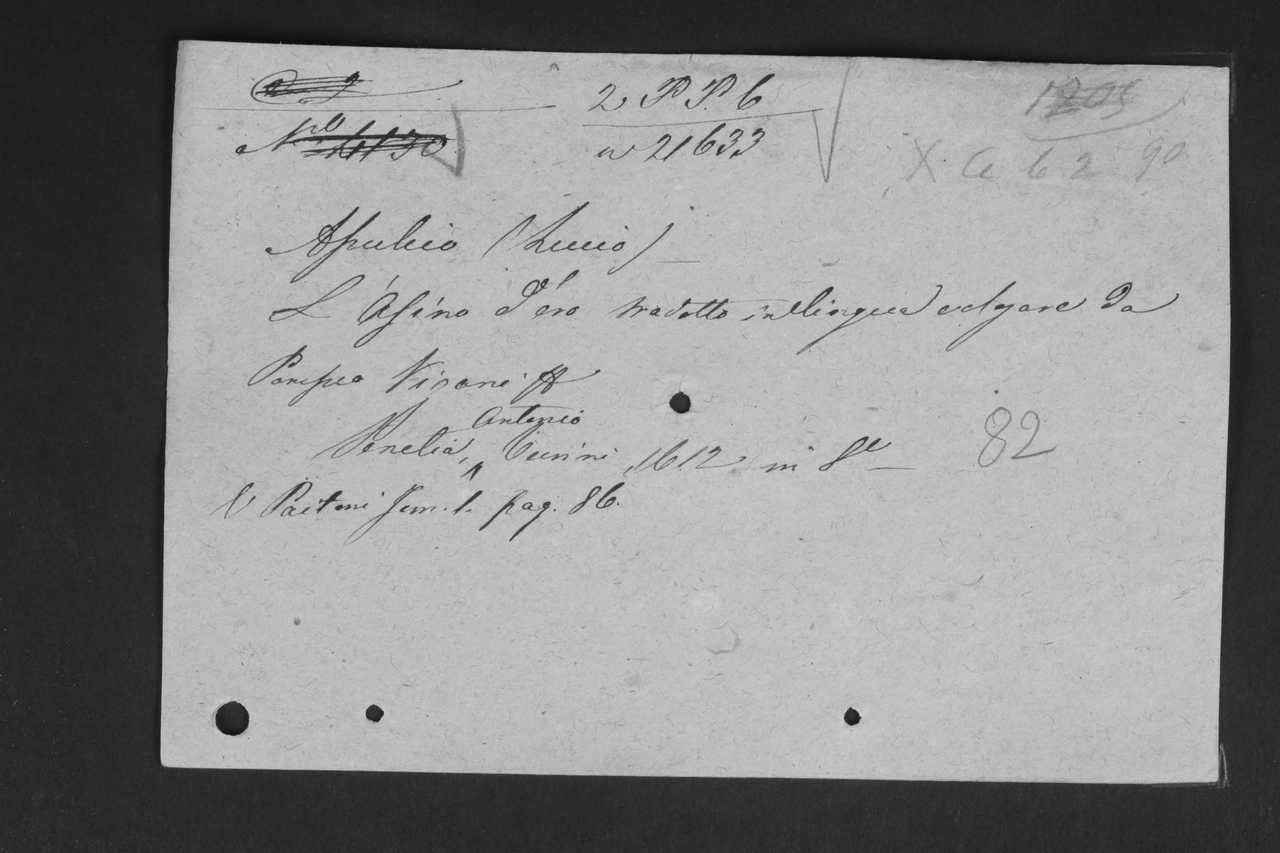 2 P.P. 6
n 21633
X a 6 2 90
Apuleio (Lucio)
L'Asino d'oro tradotto in lingua volgare da
Pompeo Vizani
Antonio
Venetia, 1612 in 8°
82
V Paitoni Tom. 1. pag. 86.